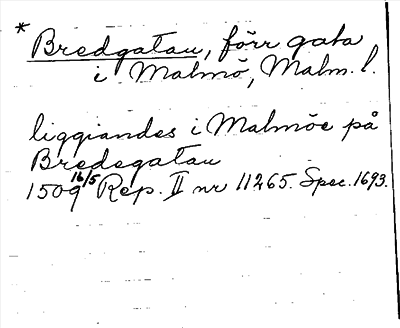 * Bredgatau, förr gata
i Malmö, Malm. l.
liggiandes i Malmöe på
Bredegatau
1509 16/5 Rep. II nr 11265. Spec. 1693.